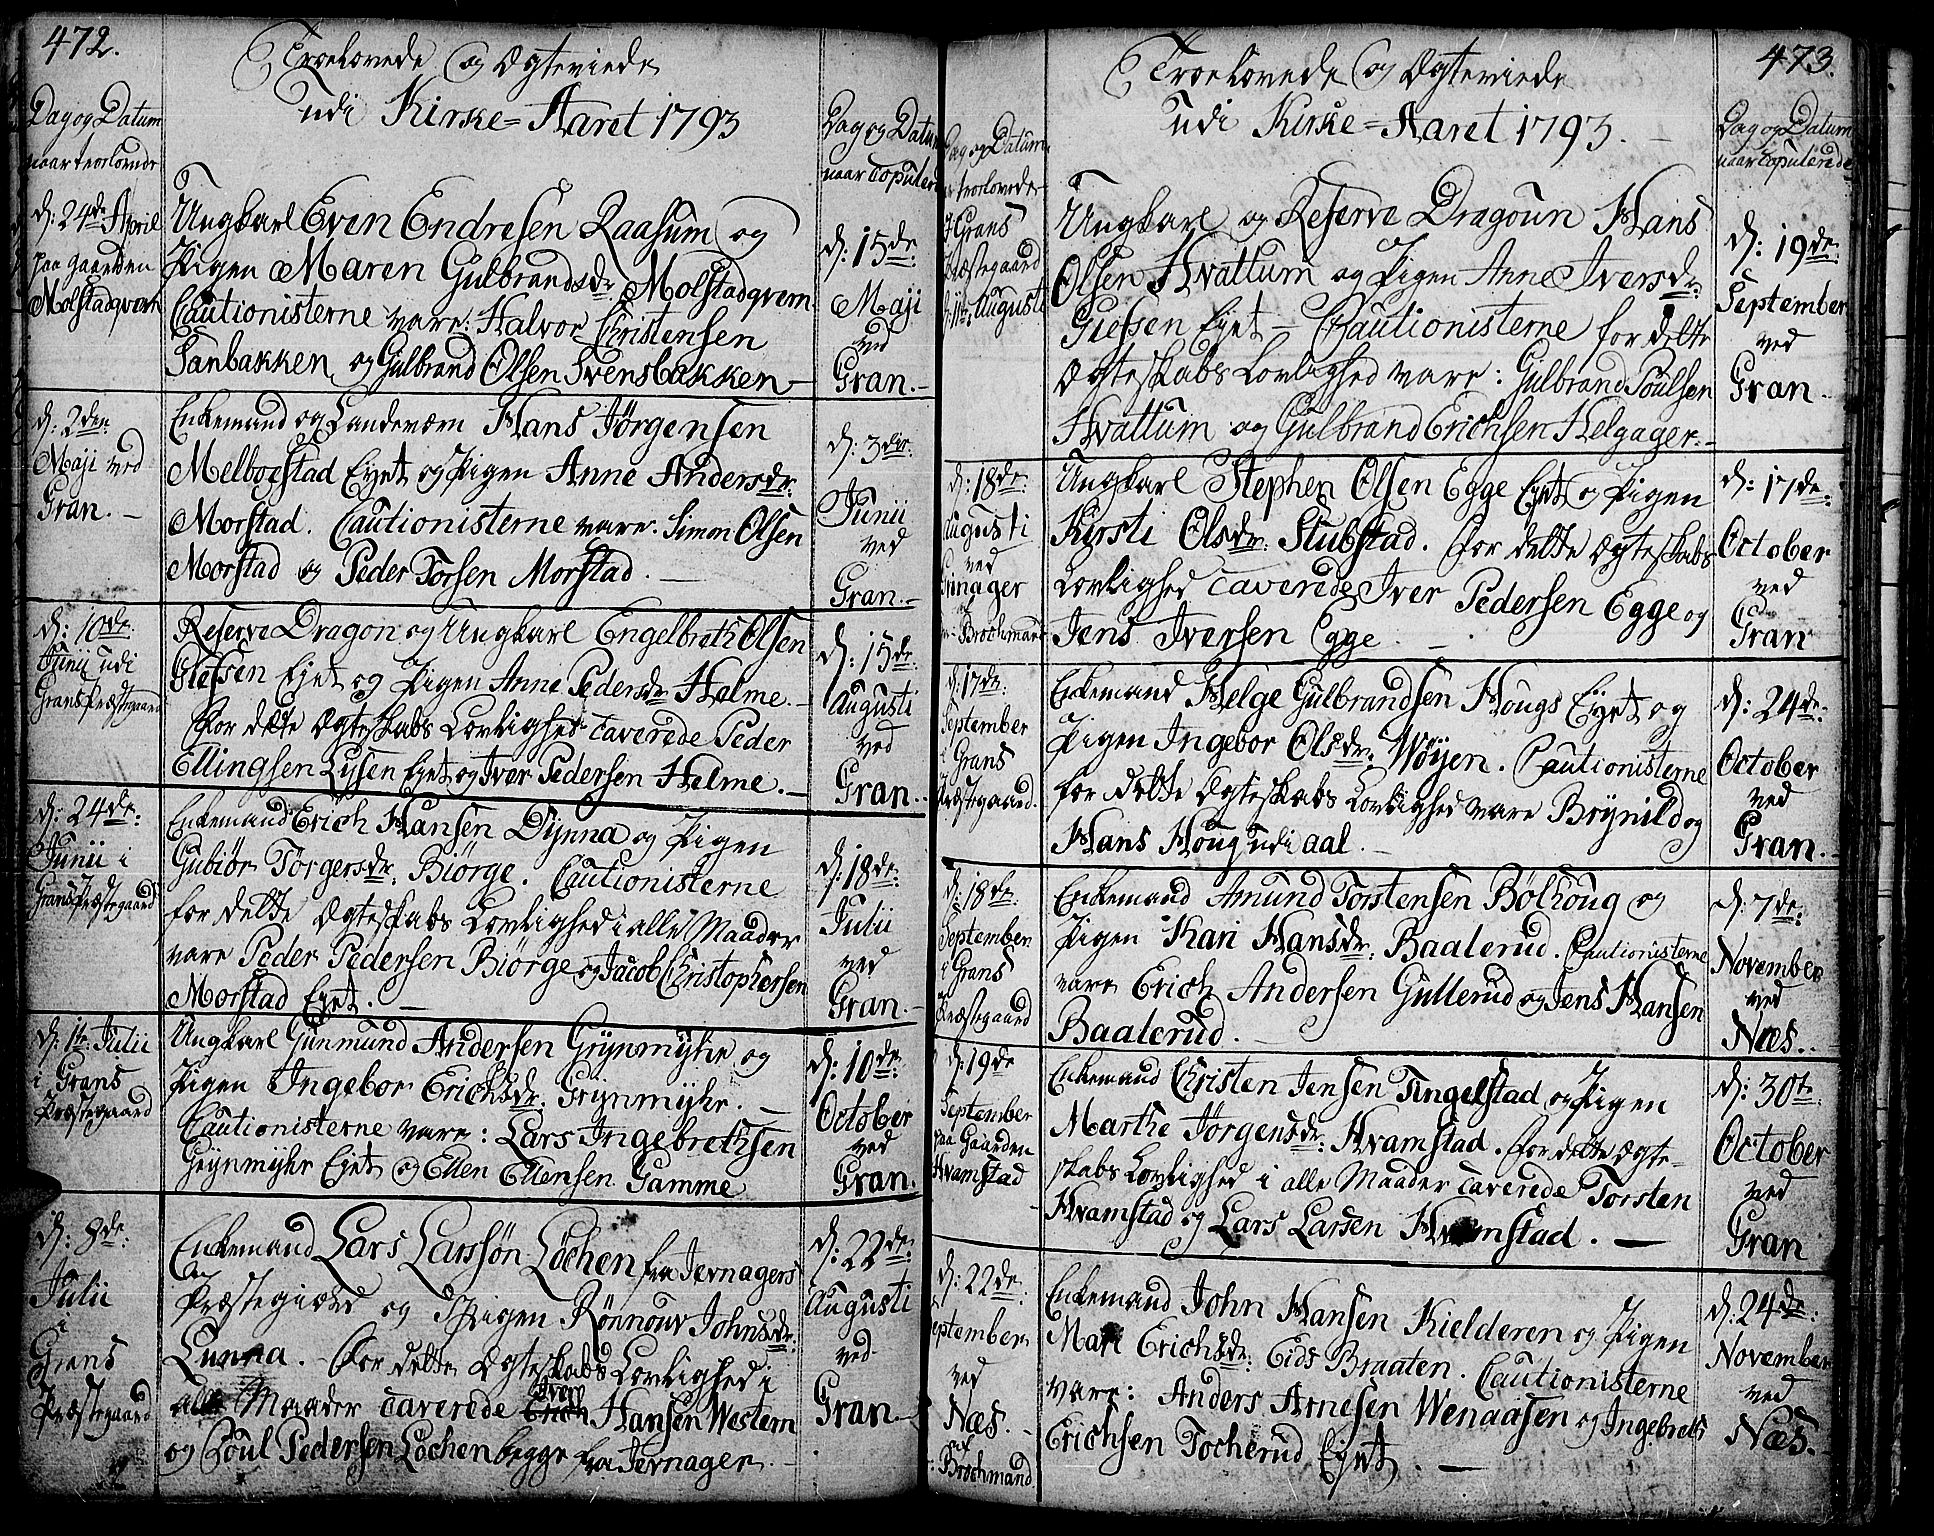 472.
Troelovede og Ægteviede
udi Kirke-Aaret 1793
Dag og Datum
naar troelovede
Dag og Datum
naar Copulered
d: 24de April
paa gaarden
Molstadqvern
Ungkarl Even Endresen Raasum og
Pigen Maren Gulbrandsdr. Molstadqvern
Cautionisterne vare: Halvor Christensen
Sanbakken og Gulbrand Olsen Svensbakken
d: 15de
Maji
ved
Gran.
d: 2den
Maji ved
Gran.
Enkemand og Landeværn Hans Jörgensen
Melboestad Eyet og Pigen Anne Andersdr.
Morstad. Cautionisterne vare. Simon Olsen
Morstad og Peder Torsen Morstad.
d: 3die
Junii
ved
Gran.
d: 10de
Junii udi
Grans Præstegaard
Reserve Dragon og Ungkarl Engelbreth Olsen
Giefsen Eyet og Pigen Anne Pedersdr Helme.
For dette Ægteskabs Lovlighed caverede Peder
Ellingsen Lysen Eyet og Iver Pedersen Helme.
d: 15de
Augusti
ved
Gran.
d: 24de
Junii i
Grans Præstegaard
Enkemand Erich Hansen Dynna og Pigen
Gubiör Törgersdr. Biörge. Cautionisterne
for dette Ægteskabs Lovlighed i alle Maader
vare Peder Pedersen Biörge og Jacob Christophersen
Morstad Eyet.
d: 18de
Julii
ved
Gran.
d: 1te Julii
i Grans
Præstegaard
Ungkarl Gunmund Andersen Grynmyhr og
Pigen Ingebor Erichsdr. Grynmyhr.
Cautionisterne vare: Lars Ingebrethsen
Grynmyhr Eyet og Ellen Ellensen Gamme
d: 10de
October
ved
Gran.
d: 8de
Julii
i
Grans
Præstegaard
Enkemand Lars Larssön Löchen fra Jevnagers
Præstegield og Pigen Rönnour Johnsdr.
Lunna. For dette Ægteskabs Lovlighed i
alle Maader caverede Iver Hansen Western
og Poul Pedersen Lochen begge fra Jevnager.
d: 22de
Augusti
ved
Gran
473.
Troelovede og Ægteviede
udi Kirke-Aaret 1793.
Dag og Datum
troelovede
Dag og Datum
naar Copulerede
I Grans
Præstegaard
d: 11te Augusti
Ungkarl og Reserve Dragoun Hans
Olsen Hvattum og Pigen Anne Iversdr.
Giefsen Eyet - Cautionisterne for dette
Ægteskabs Lovlighed vare: Gulbrand Poulsen
Hvattum og Gulbrand Erichsen Helgager.
d: 19de
September
ved
Gran.
d: 18de
Augusti
ved
Brochmand
Ungkarl Stephen Olsen Egge Eyet og Pigen
Kirsti Olsdr. Stubstad. For dette Ægteskabs
Lovlighed caverede Iver Pedersen Egge og
Jens Iversen Egge
d: 17de
October
ved
Gran
d: 17de
September
i Grans
Præstegaard.
Enkemand Helge Gulbrandsen Hougs Eyet og
Pigen Ingebor Olsdr. Wöyen. Cautionisterne
for dette Ægteskabs Lovlighed vare Brynild og
Hans Houg udi aal.
d: 24de
October
ved
Gran.
d: 18de
September
i Grans
Præstegaard
Enkemand Amund Torstensen Bölhoug og
Pigen Kari Hansdr. Baalerud. Cautionisterne
vare Erich Andersen Gullerud og Jens Hansen
Baalerud.
d: 7de
November
ved
Næs.
d: 19de
September
paa Gaarden
Hvamstad
Enkemand Christen Jensen Tingelstad og Pigen
Marthe Jörgensdr. Hvamstad. for dette Ægte-
skabs Lovlighed i alle Maader caverede Torsten
Hvamstad og Lars Larsen Hvamstad.
d: 30te
October
ved
Gran
d: 22de
September
ved
Næs.
Brochmand
Enkemand John Hansen Kielderen og Pigen
Mari Erichsdr. Eids Braaten. Cautionisterne
vare: Anders Arnesen Wenaasen og Ingebret
Erichsen Tocherud Eyet.
d: 24de
November
ved
Næs.